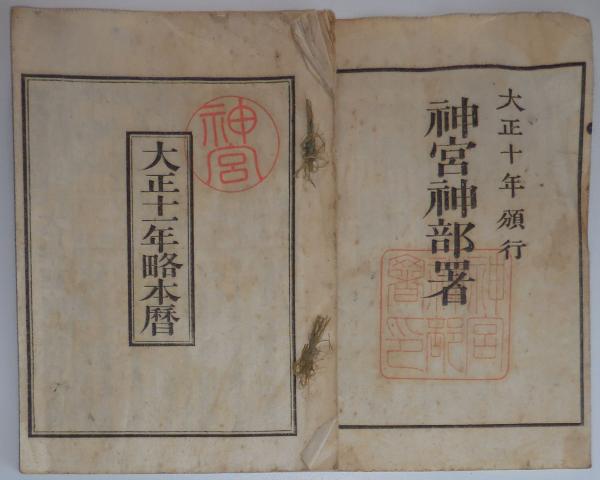 大正十年頒行
神宮神部署
神宮神部署印
神宮
大正十一年略本暦